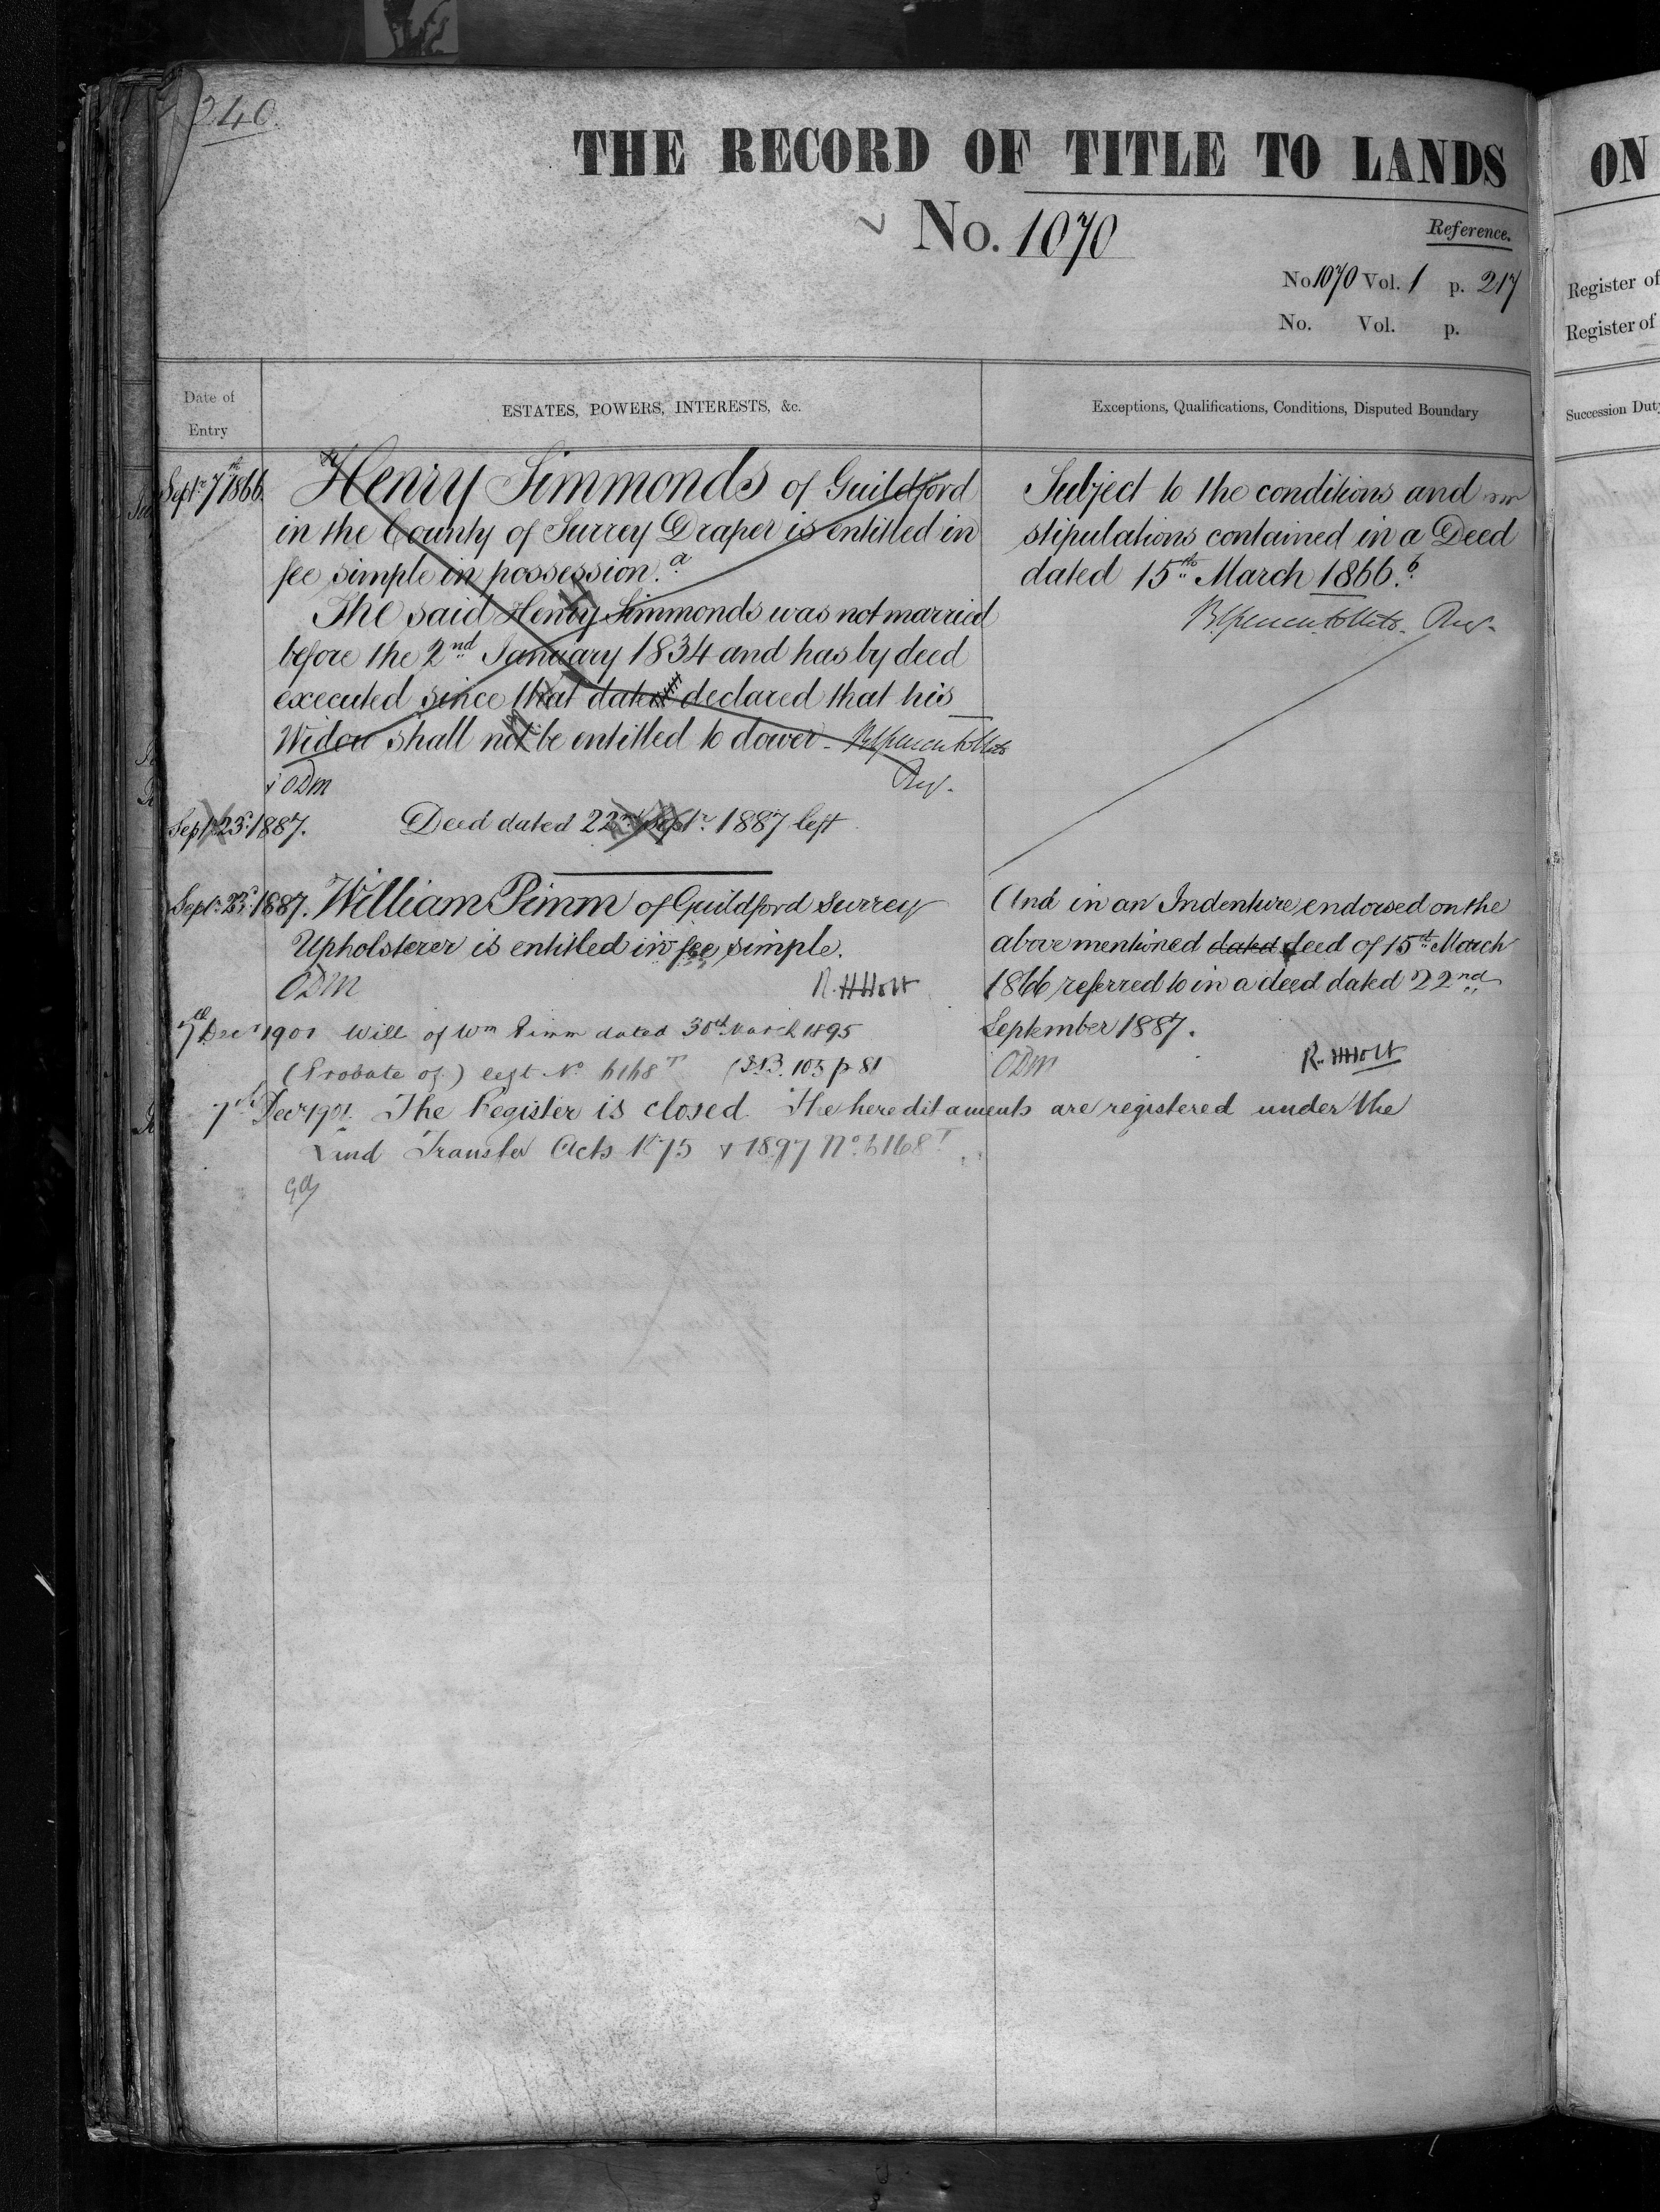 240.
THE RECORD OF TITLE TO LANDS
ON
No. 1070
Reference.
No 1070 Vol. 1 p. 217
No. Vol. p.
Register of
Register of
Date of Entry
ESTATES, POWERS, INTERESTS, &c.
Exceptions, Qualifications, Conditions, Disputed Boundary
Succession Duty
Septr. 7th 1866.
Henry Simmonds of Guildford
in the County of Surrey Draper is entitled in
fee simple in possession. a
The said Henry Simmonds was not married
before the 2nd January 1834 and has by deed
executed since that date declared that his
Widow shall not be entitled to dower
Reg.
ODM
Subject to the conditions and
stipulations contained in a Deed
dated 15th March 1866. b
Reg.
Septr. 23rd. 1887. Deed dated 22nd Septr. 1887 left
Septr. 23rd. 1887. William Pimm of Guildford Surrey
Upholsterer is entitled in fee simple.
ODM R. H Holt
And in an Indenture endorsed on the
above mentioned dated deed of 15th March
1866 referred to in a deed dated 22nd
September 1887.
ODM R. H Holt
7th Decr 1901 Will of Wm Pimm dated 30th March 1895
(Probate of) regt No 6168T (S.B. 105 p 81)
7th Decr 1901. The Register is closed. The hereditaments are registered under the
Land Transfer Acts 1875 & 1897 No. 6168T